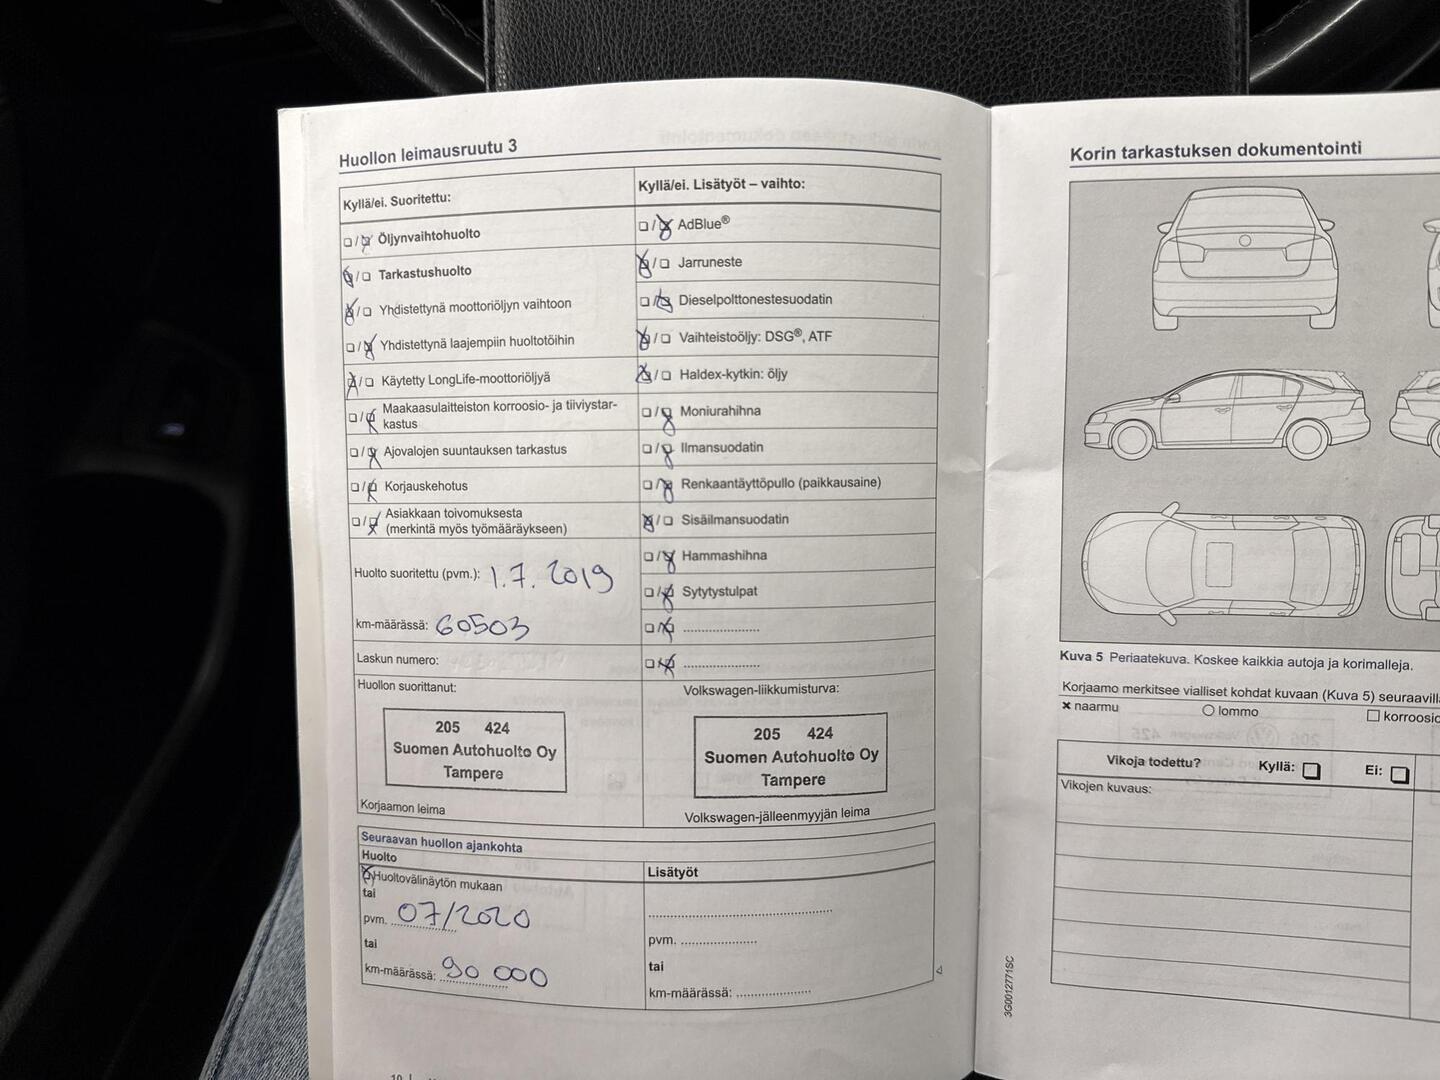 Huollon leimausruutu 3
Kyllä/ei. Suoritettu:
Öljynvaihtohuolto
Tarkastushuolto
Yhdistettynä moottoriöljyn vaihtoon
Yhdistettynä laajempiin huoltotöihin
Käytetty LongLife-moottoriöljyä
Maakaasulaitteiston korroosio- ja tiiviystar-
kastus
Ajovalojen suuntauksen tarkastus
Korjauskehotus
Asiakkaan toivomuksesta
(merkintä myös työmääräykseen)
Huolto suoritettu (pvm.): 1.7.2019
km-määrässä: 60503
Laskun numero:
Huollon suorittanut:
205 424
Suomen Autohuolto Oy
Tampere
Korjaamon leima
Kyllä/ei. Lisätyöt – vaihto:
AdBlue®
Jarruneste
Dieselpolttonestesuodatin
Vaihteistoöljy: DSG®, ATF
Haldex-kytkin: öljy
Moniurahihna
Ilmansuodatin
Renkaantäyttöpullo (paikkausaine)
Sisäilmansuodatin
Hammashihna
Sytytystulpat
Volkswagen-liikkumisturva:
205 424
Suomen Autohuolto Oy
Tampere
Volkswagen-jälleenmyyjän leima
Seuraavan huollon ajankohta
Huolto
Huoltovälinäytön mukaan
tai
pvm. 07/2020
tai
km-määrässä: 90 000
Lisätyöt
pvm.
tai
km-määrässä:
Korin tarkastuksen dokumentointi
Kuva 5 Periaatekuva. Koskee kaikkia autoja ja korimalleja.
Korjaamo merkitsee vialliset kohdat kuvaan (Kuva 5)
naarmu
lommo
Vikoja todettu? Kyllä: Ei:
Vikojen kuvaus:
3G0012771SC